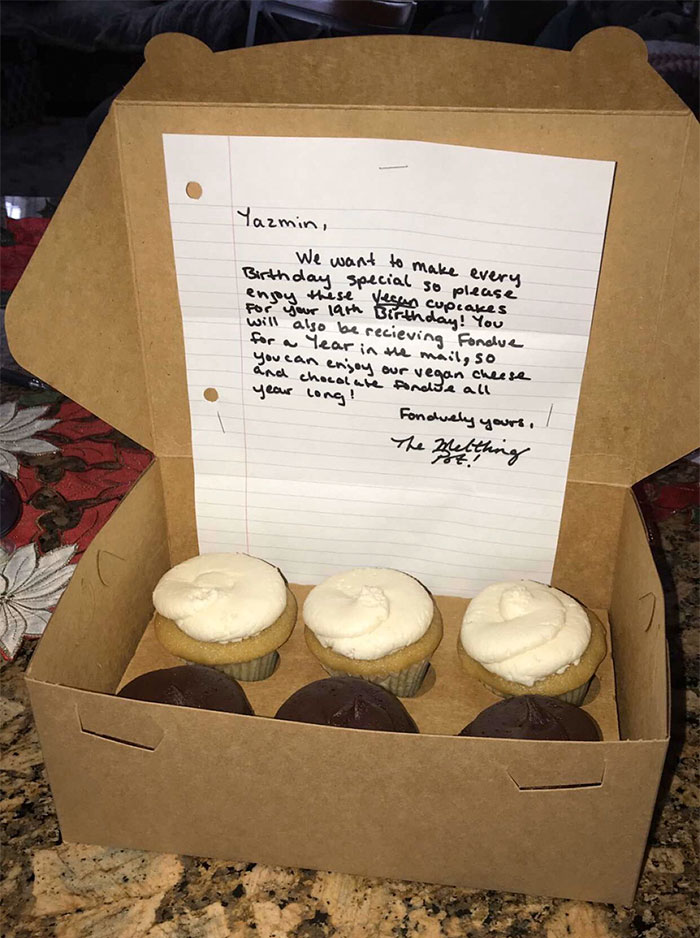 Yazmin,
We want to make every
Birthday special so please
enjoy these vegan cupcakes
For your 19th Birthday! You
will also be recieving Fondue
for a Year in the mail, so
you can enjoy our vegan cheese
and chocolate fondue all
year long!
Fonduely yours,
The Meltting
Pot!